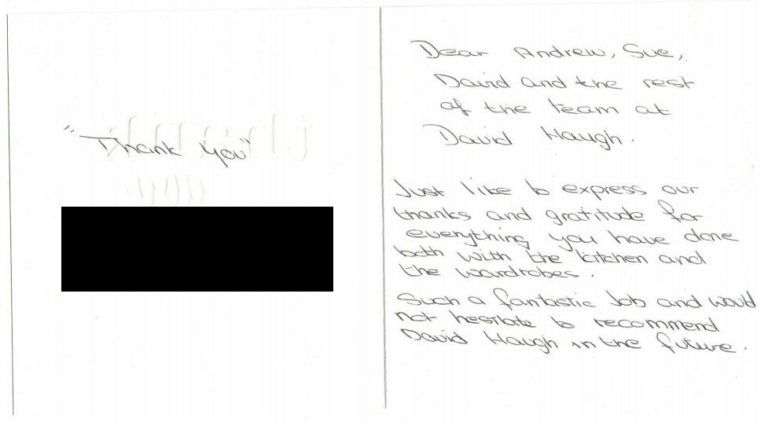 "Thank you"
Dear Andrew, Sue,
David and the rest
of the team at
David Haugh.
Just like to express our
thanks and gratitude for
everything you have done
both with the kitchen and
the wardrobes.
Such a fantastic Job and would
not hesitate to recommend
David Haugh in the future.